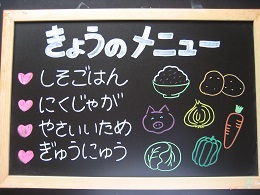 きょうのメニュー
しそごはん
にくじゃが
やさいいため
ぎゅうにゅう